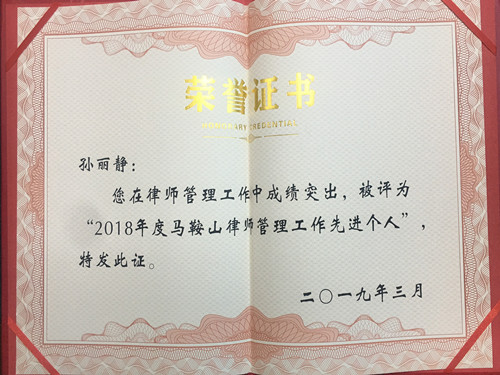 荣誉证书
HONORARY CREDENTIAL
孙丽静：
您在律师管理工作中成绩突出，被评为
“2018年度马鞍山律师管理工作先进个人”，
特发此证。
二〇一九年三月